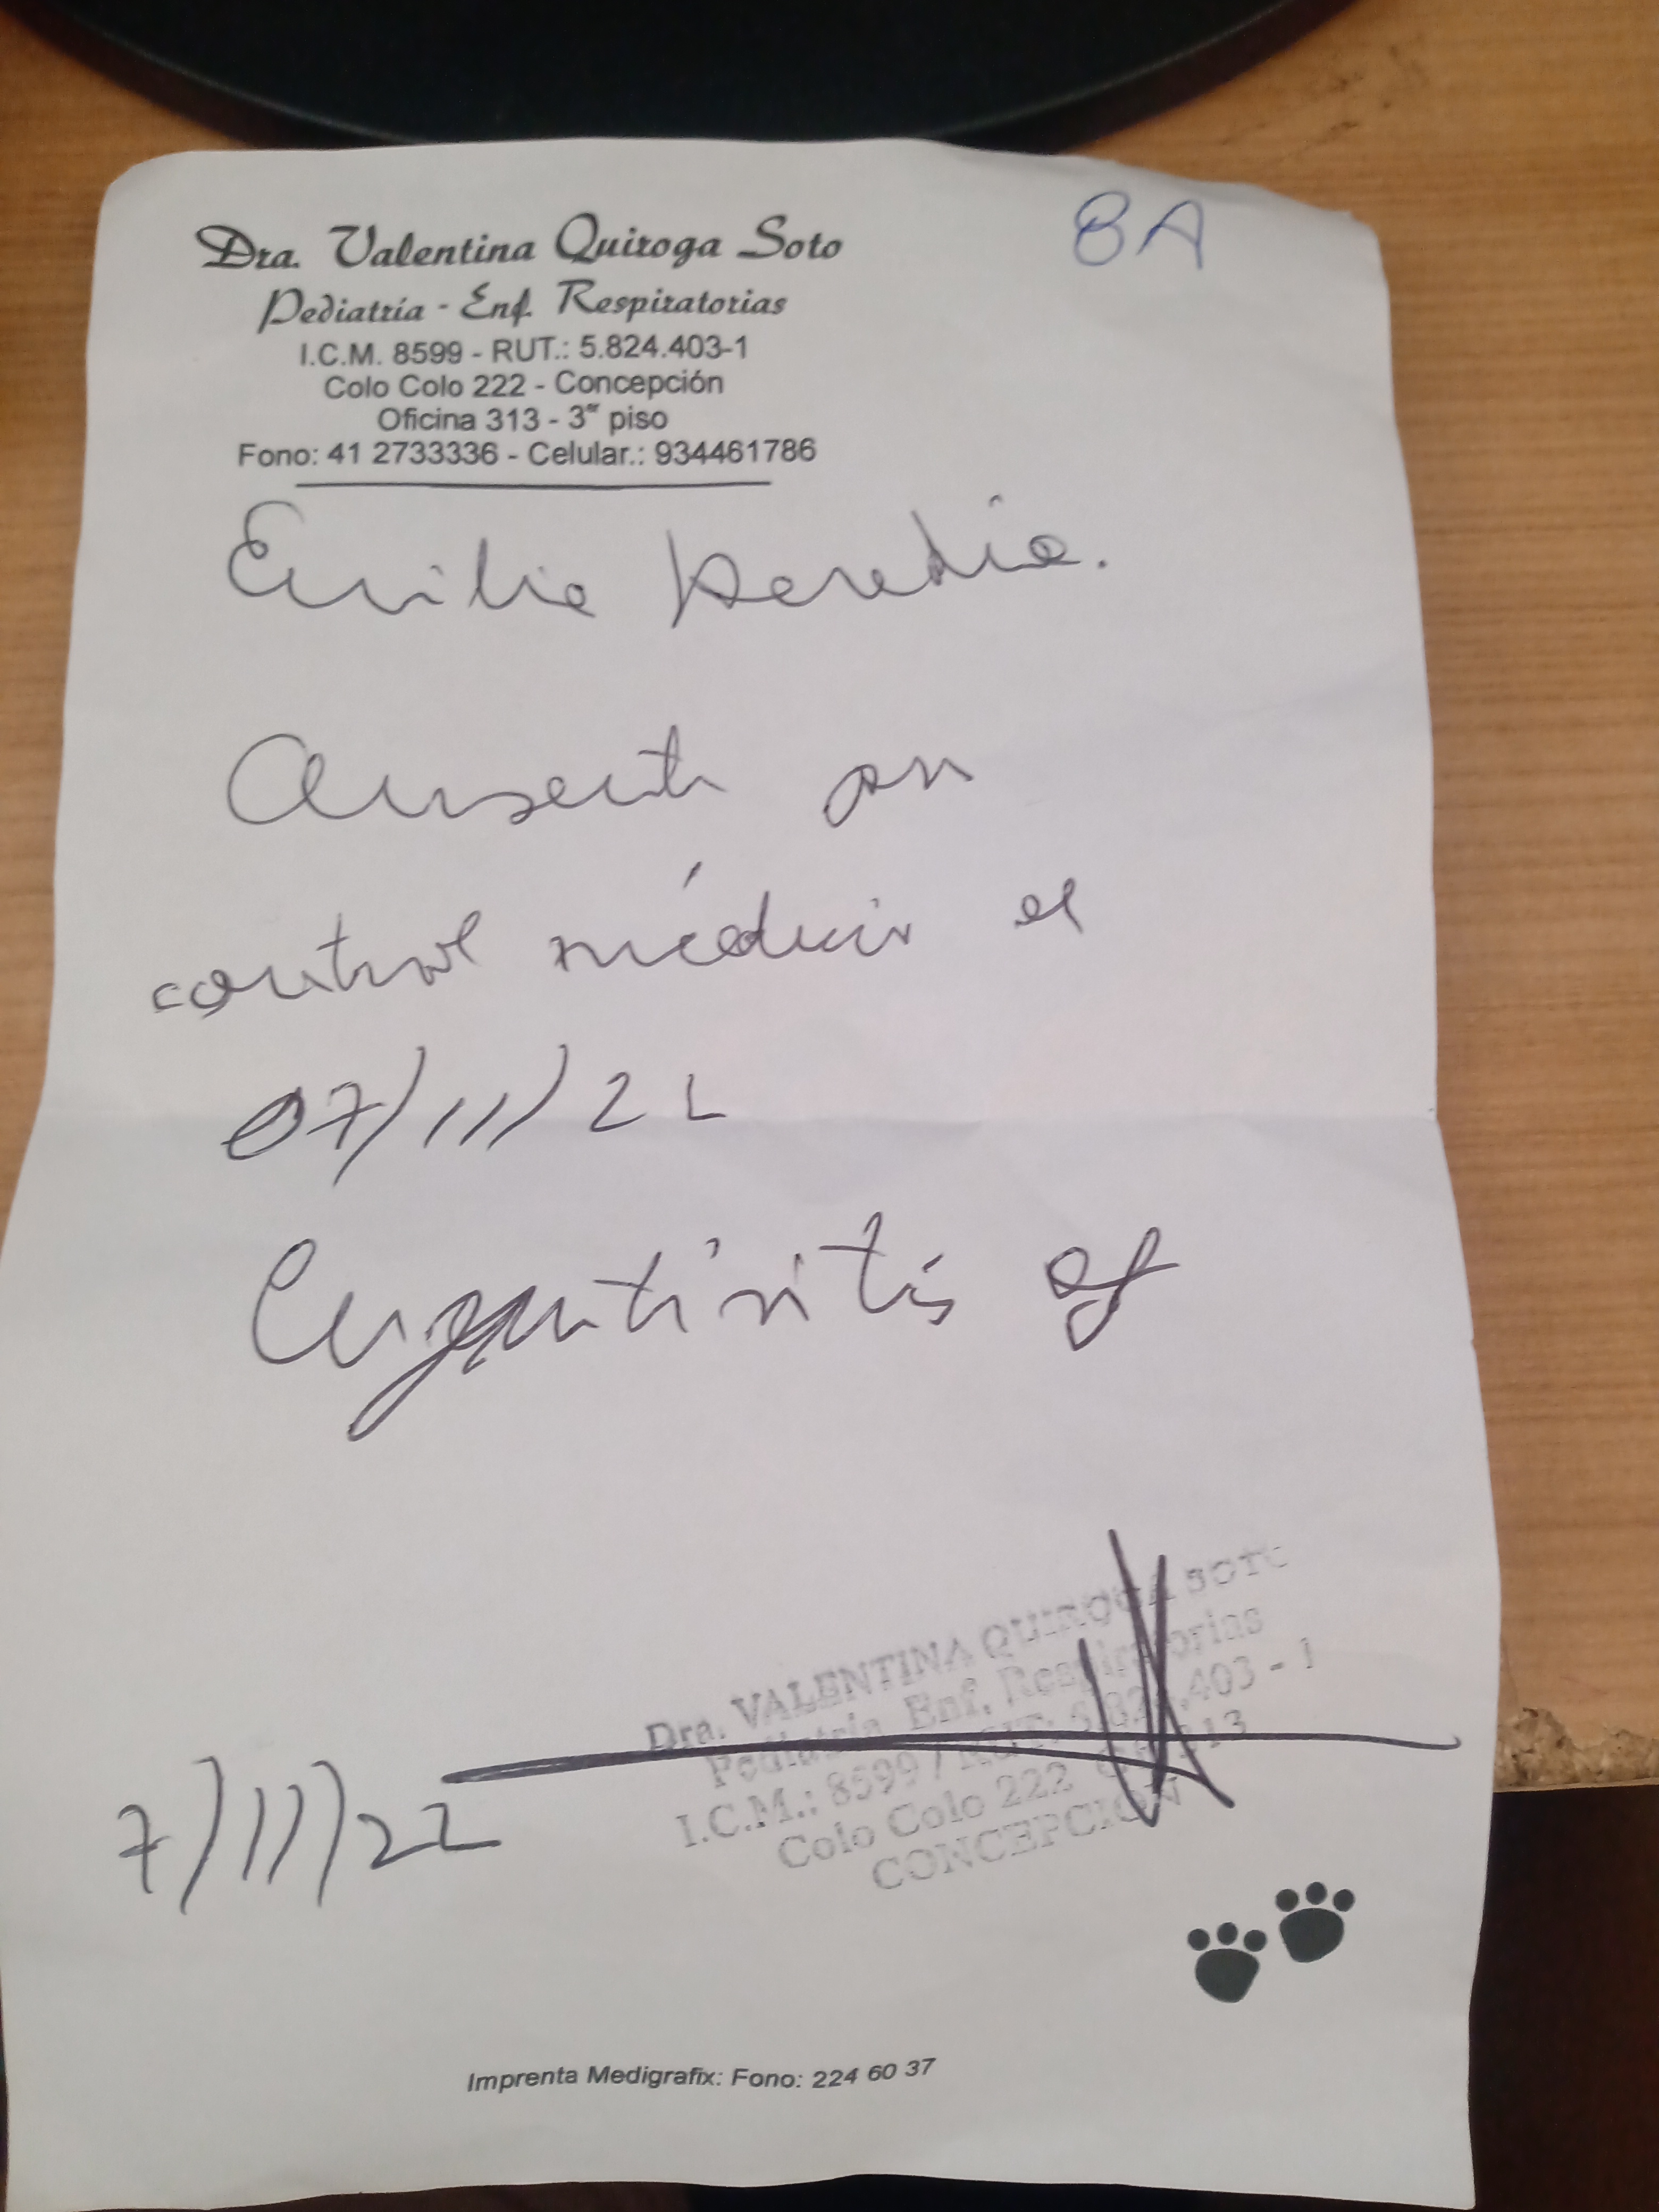 8A
Dra. Valentina Quiroga Soto
Pediatría - Enf. Respiratorias
I.C.M. 8599 - RUT.: 5.824.403-1
Colo Colo 222 - Concepción
Oficina 313 - 3er piso
Fono: 41 2733336 - Celular.: 934461786
Emilia Heredia.
Ausente por
control médico el
07/11/22
Dra. VALENTINA QUIROGA SOTO
Pediatría Enf. Respiratorias
I.C.M.: 8599 / RUT: 5.824.403 - 1
Colo Colo 222 Of. 313
CONCEPCION
7/11/22
Imprenta Medigrafix: Fono: 224 60 37